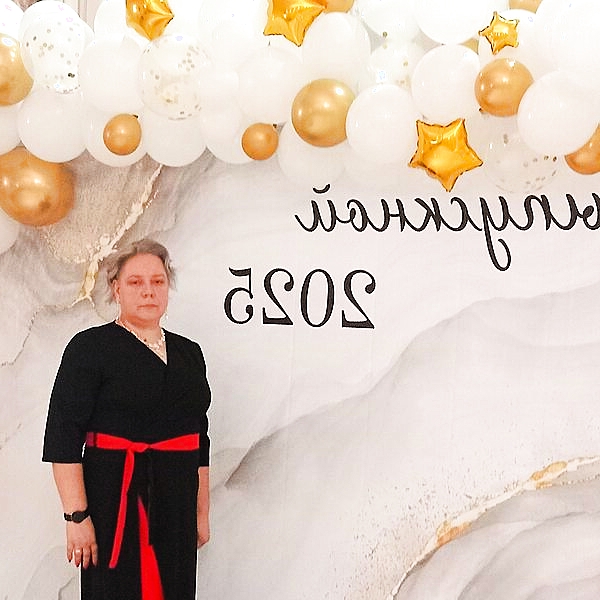 Выпускной
2025